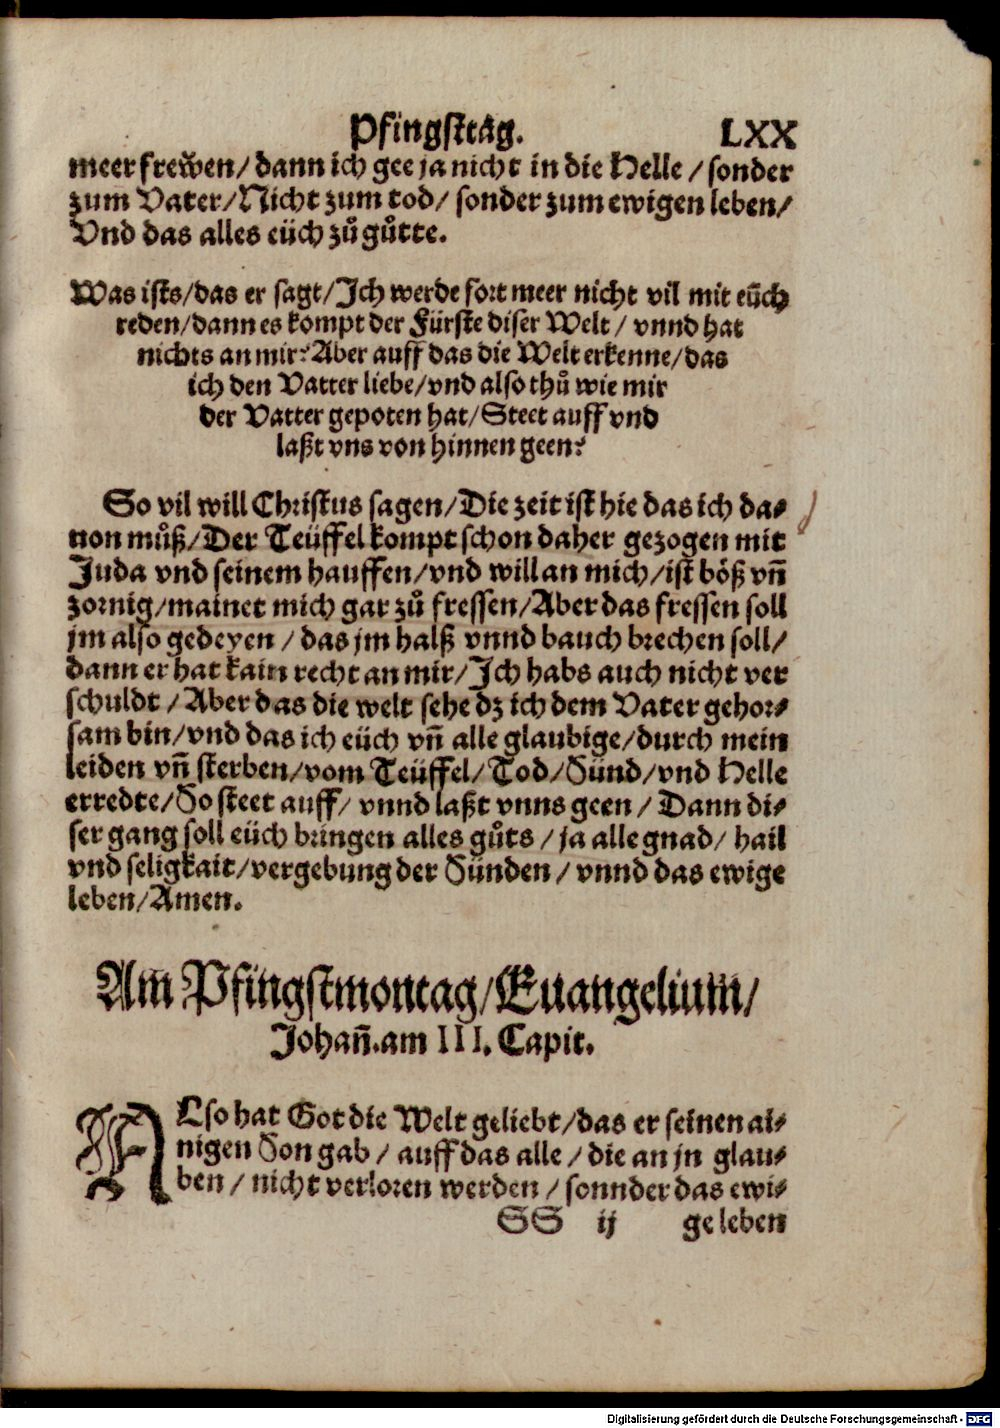 Pfingsttag. LXX
meer frewen/ dann ich gee ja nicht in die Helle/ sonder
zum Vater/ Nicht zum tod/ sonder zum ewigen leben/
Vnd das alles eüch zů gůtte.
Was ists/ das er sagt/ Ich werde fort meer nicht vil mit eüch
reden/ dann es kompt der Fürste diser Welt/ vnnd hat
nichts an mir? Aber auff das die Welt erkenne/ das
ich den Vatter liebe/ vnd also thů wie mir
der Vatter gepoten hat/ Steet auff vnd
laßt vns von hinnen geen?
So vil will Christus sagen/ Die zeit ist hie das ich da⸗
uon můß/ Der Teüffel kompt schon daher gezogen mit
Juda vnd seinem hauffen/ vnd will an mich/ ist böß vñ
zornig/ mainet mich gar zů fressen/ Aber das fressen soll
jm also gedeyen/ das jm halß vnnd bauch brechen soll/
dann er hat kain recht an mir/ Ich habs auch nicht ver
schuldt/ Aber das die welt sehe dz ich dem Vater gehor⸗
sam bin/ vnd das ich eüch vñ alle glaubige/ durch mein
leiden vñ sterben/ vom Teüffel/ Tod/ Sünd/ vnd Helle
erredte/ So steet auff/ vnnd laßt vnns geen/ Dann di⸗
ser gang soll eüch bringen alles gůts/ ja alle gnad/ hail
vnd seligkait/ vergebung der Sünden/ vnnd das ewige
leben/ Amen.
Am Pfingstmontag/ Euangelium/
Johañ. am III. Capit.
ALso hat Got die Welt geliebt/ das er seinen ai⸗
nigen Son gab/ auff das alle/ die an jn glau⸗
ben/ nicht verloren werden/ sonnder das ewi⸗
SS ij ge leben
Digitalisierung gefördert durch die Deutsche Forschungsgemeinschaft - DFG